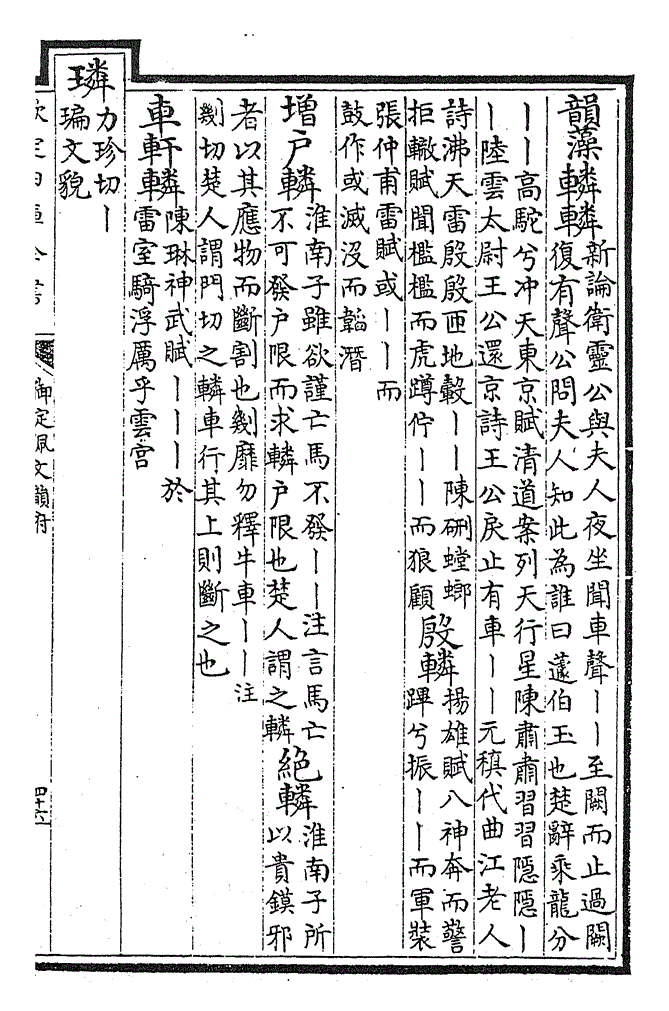 韻藻轔轔新論衛靈公與夫人夜坐聞車聲丨丨至闕而止過闕
復有聲公問夫人知此為誰曰蘧伯玉也楚辭乘龍兮
丨丨高駝兮冲天東京賦清道案列天行星陳肅肅習習隠隠丨
丨陸雲太尉王公還京詩王公戾止有車丨丨元稹代曲江老人
詩沸天雷殷殷匝地轂丨丨陳硎螳螂
拒轍賦聞檻檻而虎蹲佇丨丨而狼顧殷轔揚雄賦八神奔而警
蹕兮振丨丨而軍裝
張仲甫雷賦或丨丨而
鼓作或滅沒而韜潛
增户轔淮南子雖欲謹亡馬不發丨丨注言馬亡
不可發户限而求轔户限也楚人謂之轔絕轔淮南子所
以貴鏌邪
者以其應物而斷割也剡靡勿釋牛車丨丨注
剡切楚人謂門切之轔車行其上則斷之也
車軒轔陳琳神武賦丨丨丨於
雷室騎浮厲乎雲宫
璘力珍切丨
㻞文貌
欽定四庫全書
御定佩文韻府
四十六